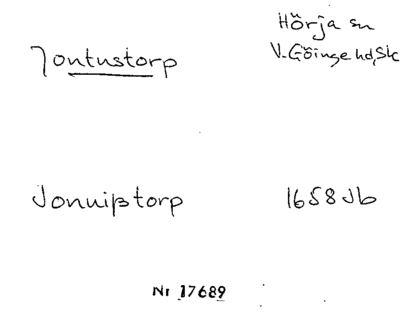 Hörja sn
Jontustorp V. Göinge hd, Sk
Jonuißtorp 1658 Jb
Nr 17689